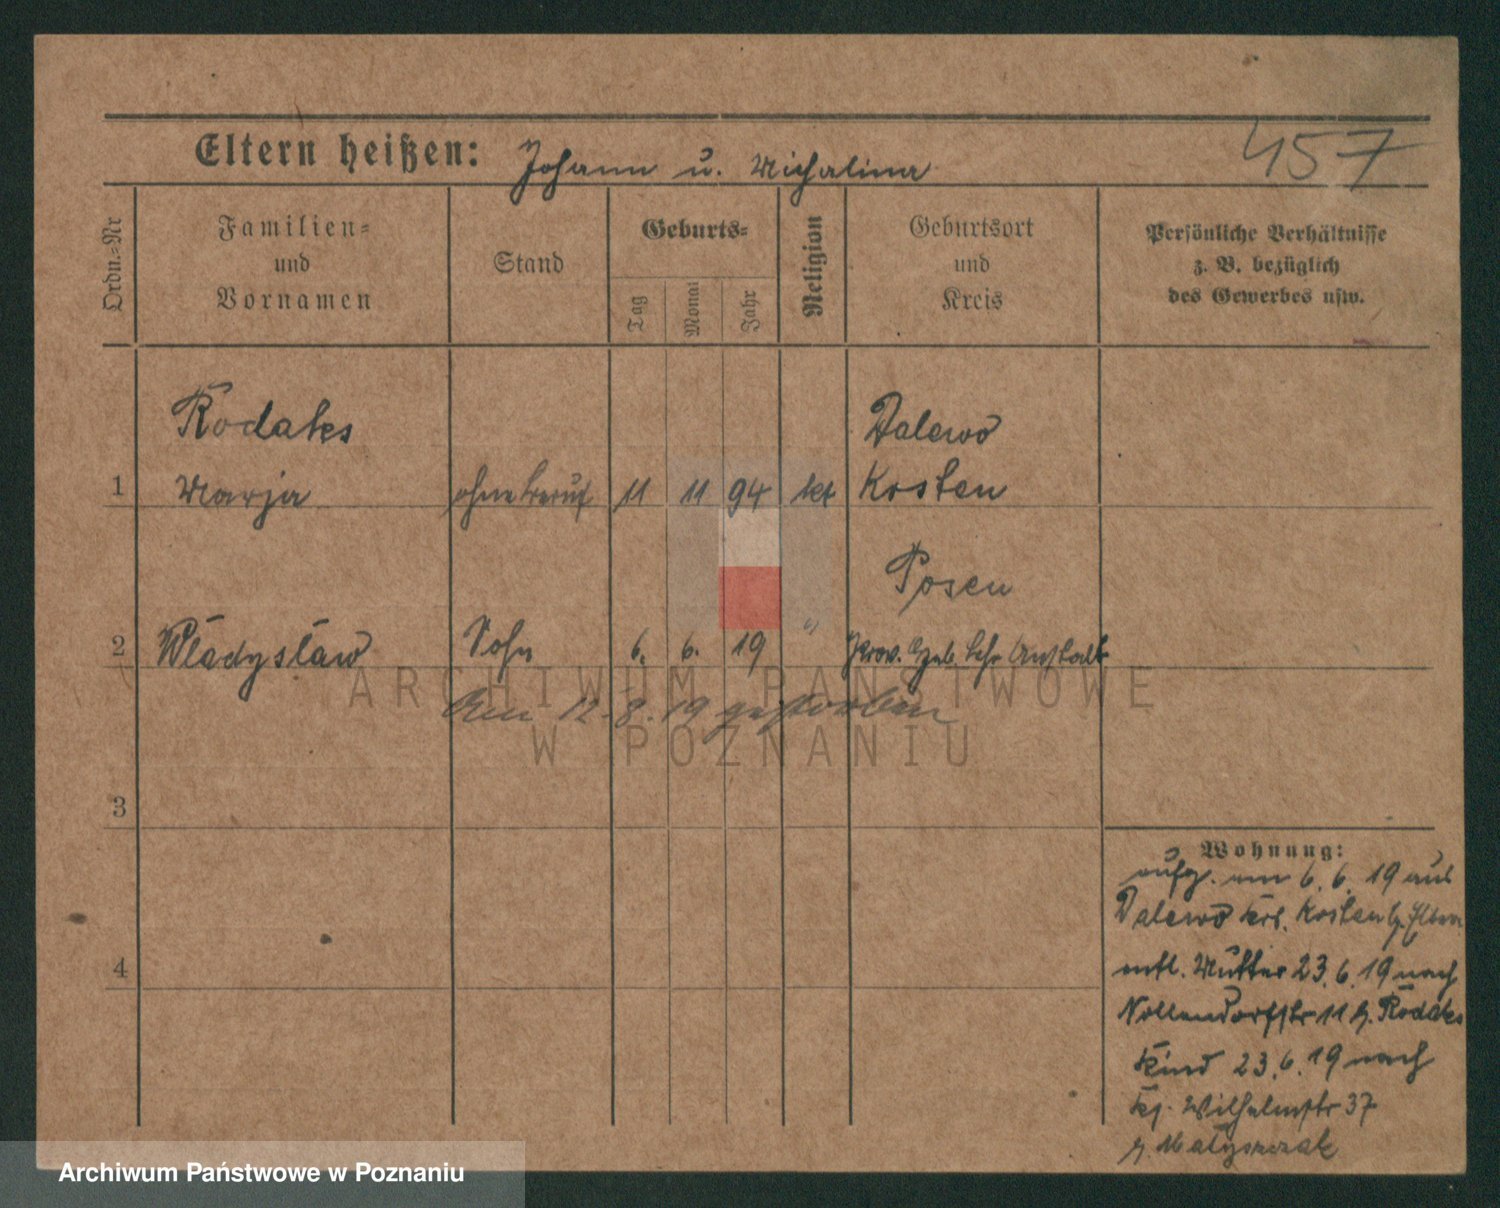 457
Eltern heißen: Johann u. Michalina
Ordn.-Nr
Familien-
und
Vornamen
Stand
Geburts-
Tag
Monat
Jahr
Religion
Geburtsort
und
Kreis
Persönliche Verhältnisse
z. B. bezüglich
des Gewerbes usw.
Rodaks Dalewo
1 Marja ohne Beruf 11 11 94 kt Kosten
Posen
2 Władysław Sohn 6. 6. 19 " Prov. Heb. Lehr Anstalt
Am 12.8.19 gestorben
3
4
Wohnung:
aufg. am 6.6.19 aus
Dalewo Krs. Kosten b. Eltern
entl. Mutter 23.6.19 nach
Nollendorfstr 11 b. Rodaks
Kind 23.6.19 nach
Wilhelmstr 37
b. Matyszczak
ARCHIWUM PAŃSTWOWE
W POZNANIU
Archiwum Państwowe w Poznaniu